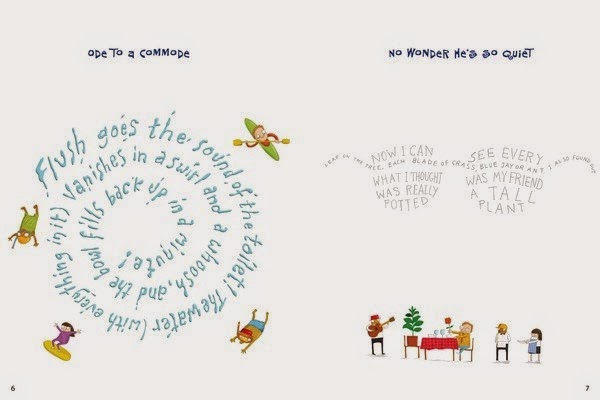 ODE TO a COMMODE
Flush goes the sound of the toilet! The water (with everything in it) vanishes in a swirl and a whoosh, and the bowl fills back up in a minute!
6
NO WONDER HE'S SO QUIET
NOW I CAN SEE EVERY
LEAF ON THE TREE, EACH BLADE OF GRASS, BLUE JAY OR ANT. I ALSO FOUND OUT
WHAT I THOUGHT WAS MY FRIEND
WAS REALLY A TALL
POTTED PLANT
7